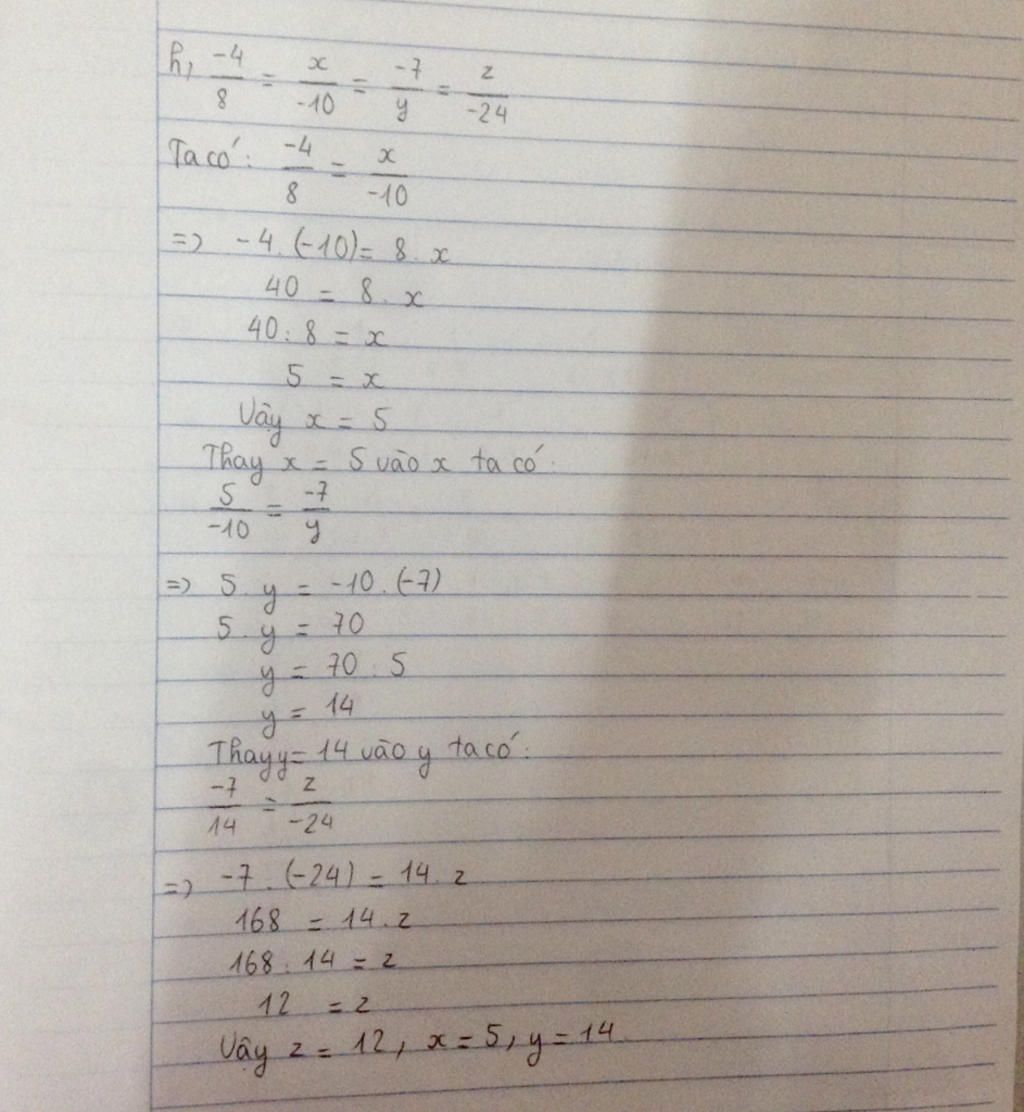 h, -4/8 = x/-10 = -7/y = z/-24
Ta có: -4/8 = x/-10
=> -4.(-10) = 8.x
40 = 8.x
40:8 = x
5 = x
Vậy x = 5
Thay x = 5 vào x ta có:
5/-10 = -7/y
=> 5.y = -10.(-7)
5.y = 70
y = 70:5
y = 14
Thay y = 14 vào y ta có:
-7/14 = z/-24
=> -7.(-24) = 14.z
168 = 14.z
168:14 = z
12 = z
Vậy z = 12, x = 5, y = 14